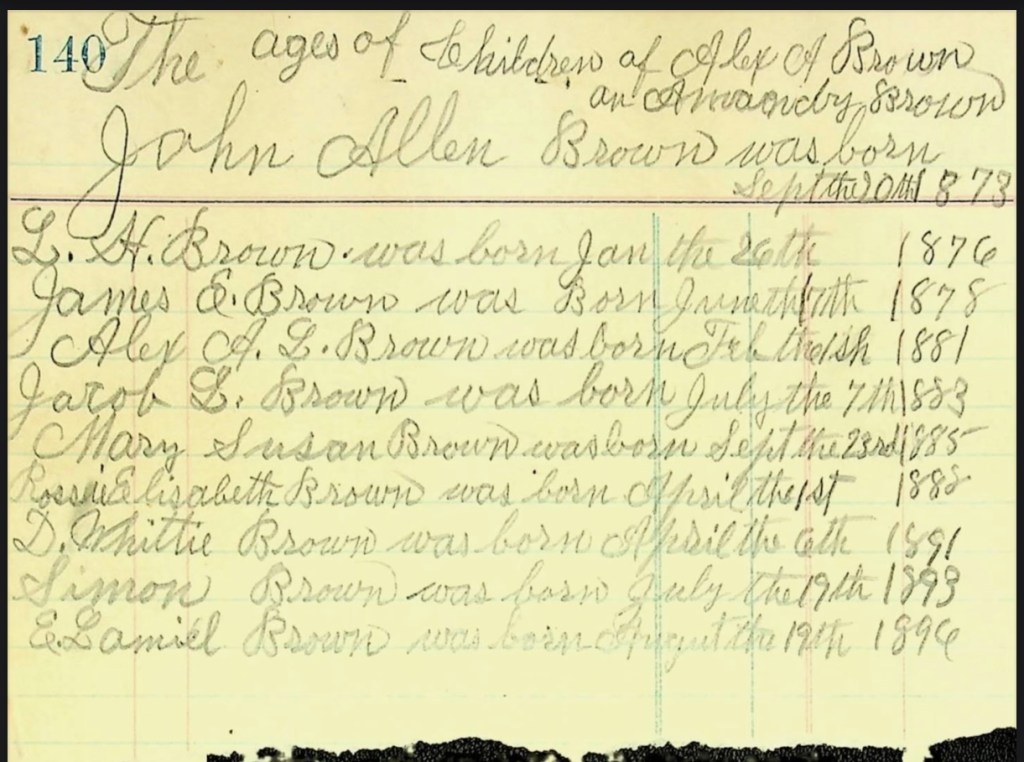 140 The ages of Children of Alex A Brown
an Amandy Brown
John Allen Brown was born
Sept the 20th 1873
L. H. Brown. was born Jan the 26th 1876
James E. Brown was Born June the 17th 1878
Alex A. L. Brown was born Feb the 1sh 1881
Jacob L. Brown was born July the 7th 1883
Mary Susan Brown was born Sept the 23rd 1885
Rossie Elisabeth Brown was born April the 1st 1888
D. Whittie Brown was born April the 6th 1891
Simon Brown was born July the 19th 1893
E. Lamiel Brown was born August the 19th 1896